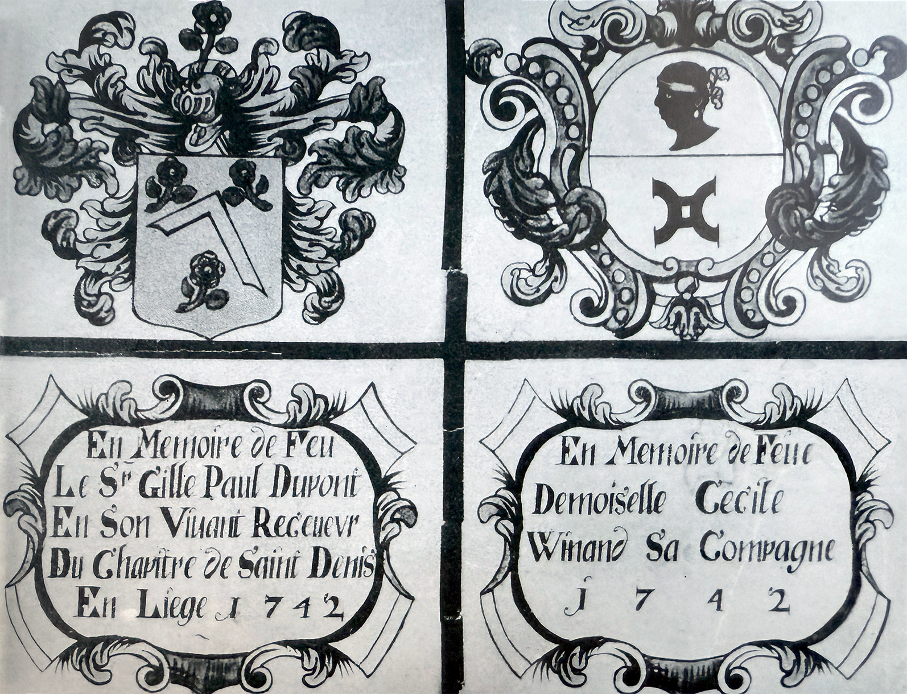 En Memoire de Feu
Le Sr Gille Paul Dupont
En Son Viuant Receueur
Du Chapitre de Saint Denis
En Liege j 7 4 2
En Memoire de Feue
Demoiselle Cecile
Winand Sa Compagne
j 7 4 2